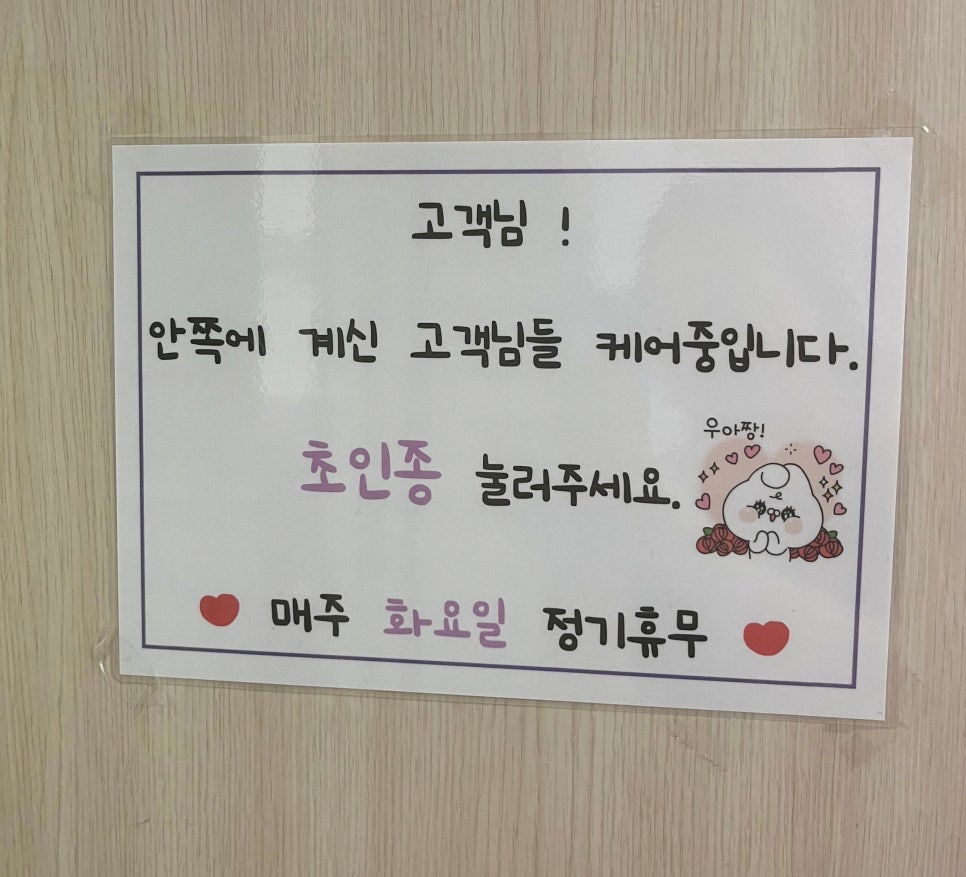 고객님 !
안쪽에 계신 고객님들 케어중입니다.
우아짱!
초인종 눌러주세요.
매주 화요일 정기휴무